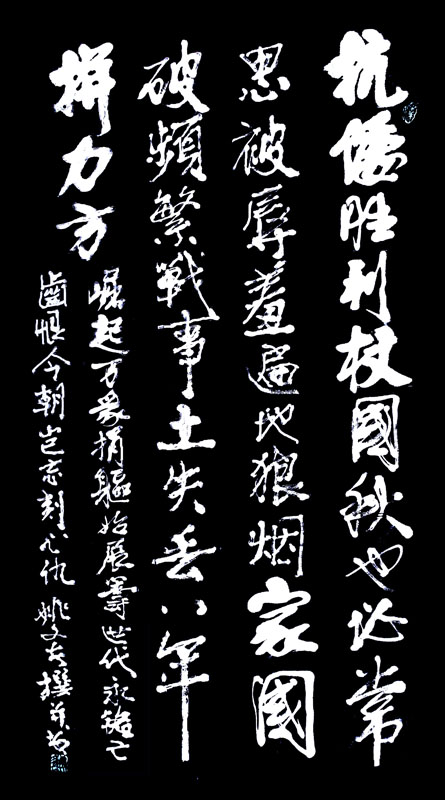 抗倭胜利杖國秋也必常
思被辱羞遍地狼烟家國
破頻繁戰事土失丢八年
拼力方
崛起万眾捐軀始展籌世代永銘亡
齒恨今朝岂忘刻心仇 姚文撰并书